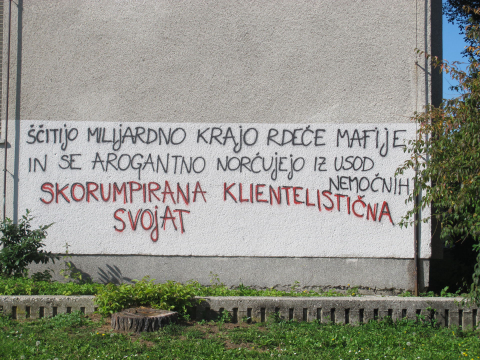 ŠČITIJO MILIJARDNO KRAJO RDEČE MAFIJE
IN SE AROGANTNO NORČUJEJO IZ USOD
NEMOČNIH
SKORUMPIRANA KLIENTELISTIČNA
SVOJAT